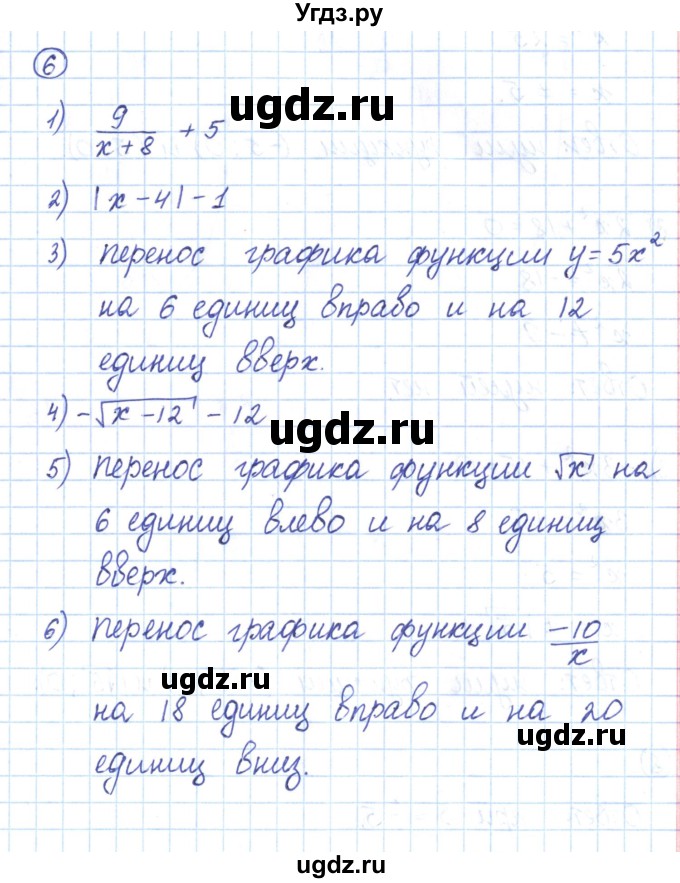 Угдз.ру
6
ugdz.ru
1) 9/(x+8) + 5
2) |x-4|-1
ugdz.ru
3) перенос графика функции y=5x²
на 6 единиц вправо и на 12
ugdz.ru
единиц вверх.
4) -√(x-12) - 12
ugdz.ru
5) перенос графика функции √x на
6 единиц влево и на 8 единиц
ugdz.ru
вверх.
6) перенос графика функции -10/x
ugdz.ru
на 18 единиц вправо и на 20
ugdz.ru
единиц вниз.
ugdz.ru